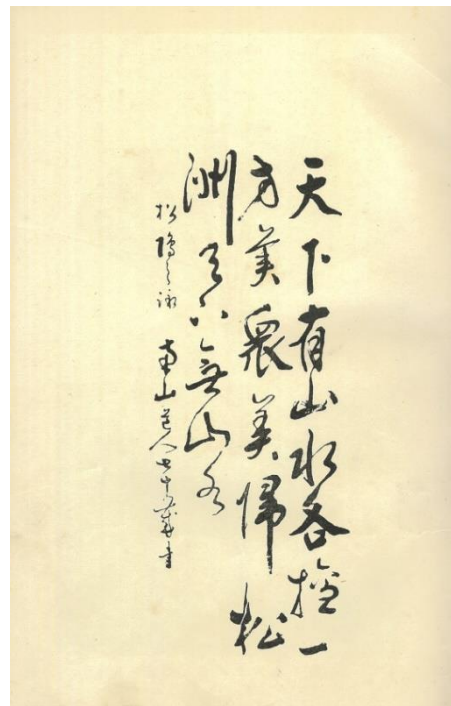 天下有山水各擅一
方美衆美帰松
洲天下無山水
松隝之詠 南山道人七十歳書